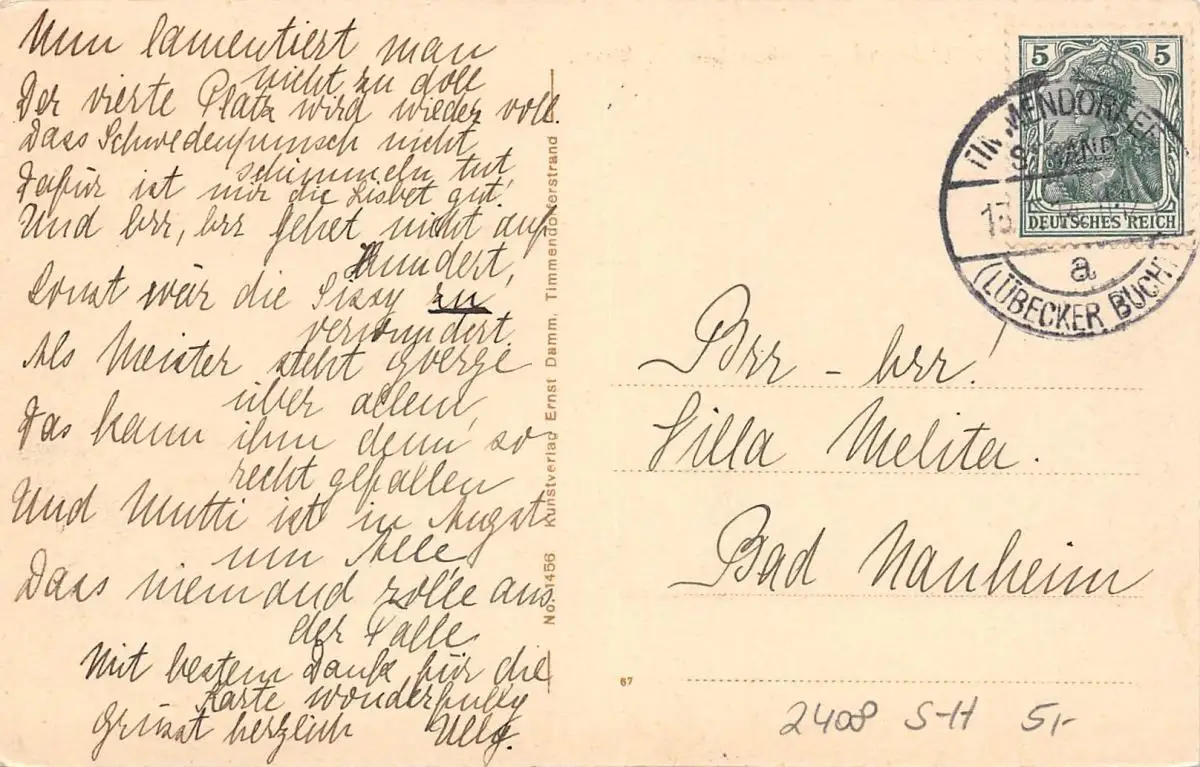 Nun lamentiert man
nicht zu doll
Der vierte Platz wird wieder voll.
Dass Schwedenpunsch nicht
schimmeln tut,
Dafür ist mir die Lisbet gut.
Und brr, brr gehet nicht auf
Hundert,
Sonst wär die Sissy zu
verwundert.
Als Meister steht
über allem,
Das kann ihm denn so
recht gefallen
Und Mutti ist in Angst
um Alle,
Dass niemand solle aus
der
Mit bestem Dank für die
Karte wonderfully
Grüsst herzlich Ully.
No. 1456 Kunstverlag Ernst Damm, Timmendorferstrand
67
5 5
DEUTSCHES REICH
TIMMENDORFER
STRAND
13
a
(LÜBECKER BUCHT)
Brr - brr!
Villa Melita.
Bad Nauheim
2408 S-H 5,-